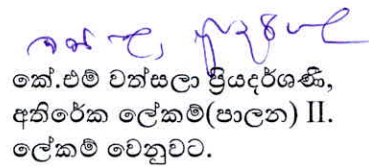 කේ.එම් වත්සලා ප්‍රියදර්ශණී,
අතිරේක ලේකම්(පාලන) II.
ලේකම් වෙනුවට.